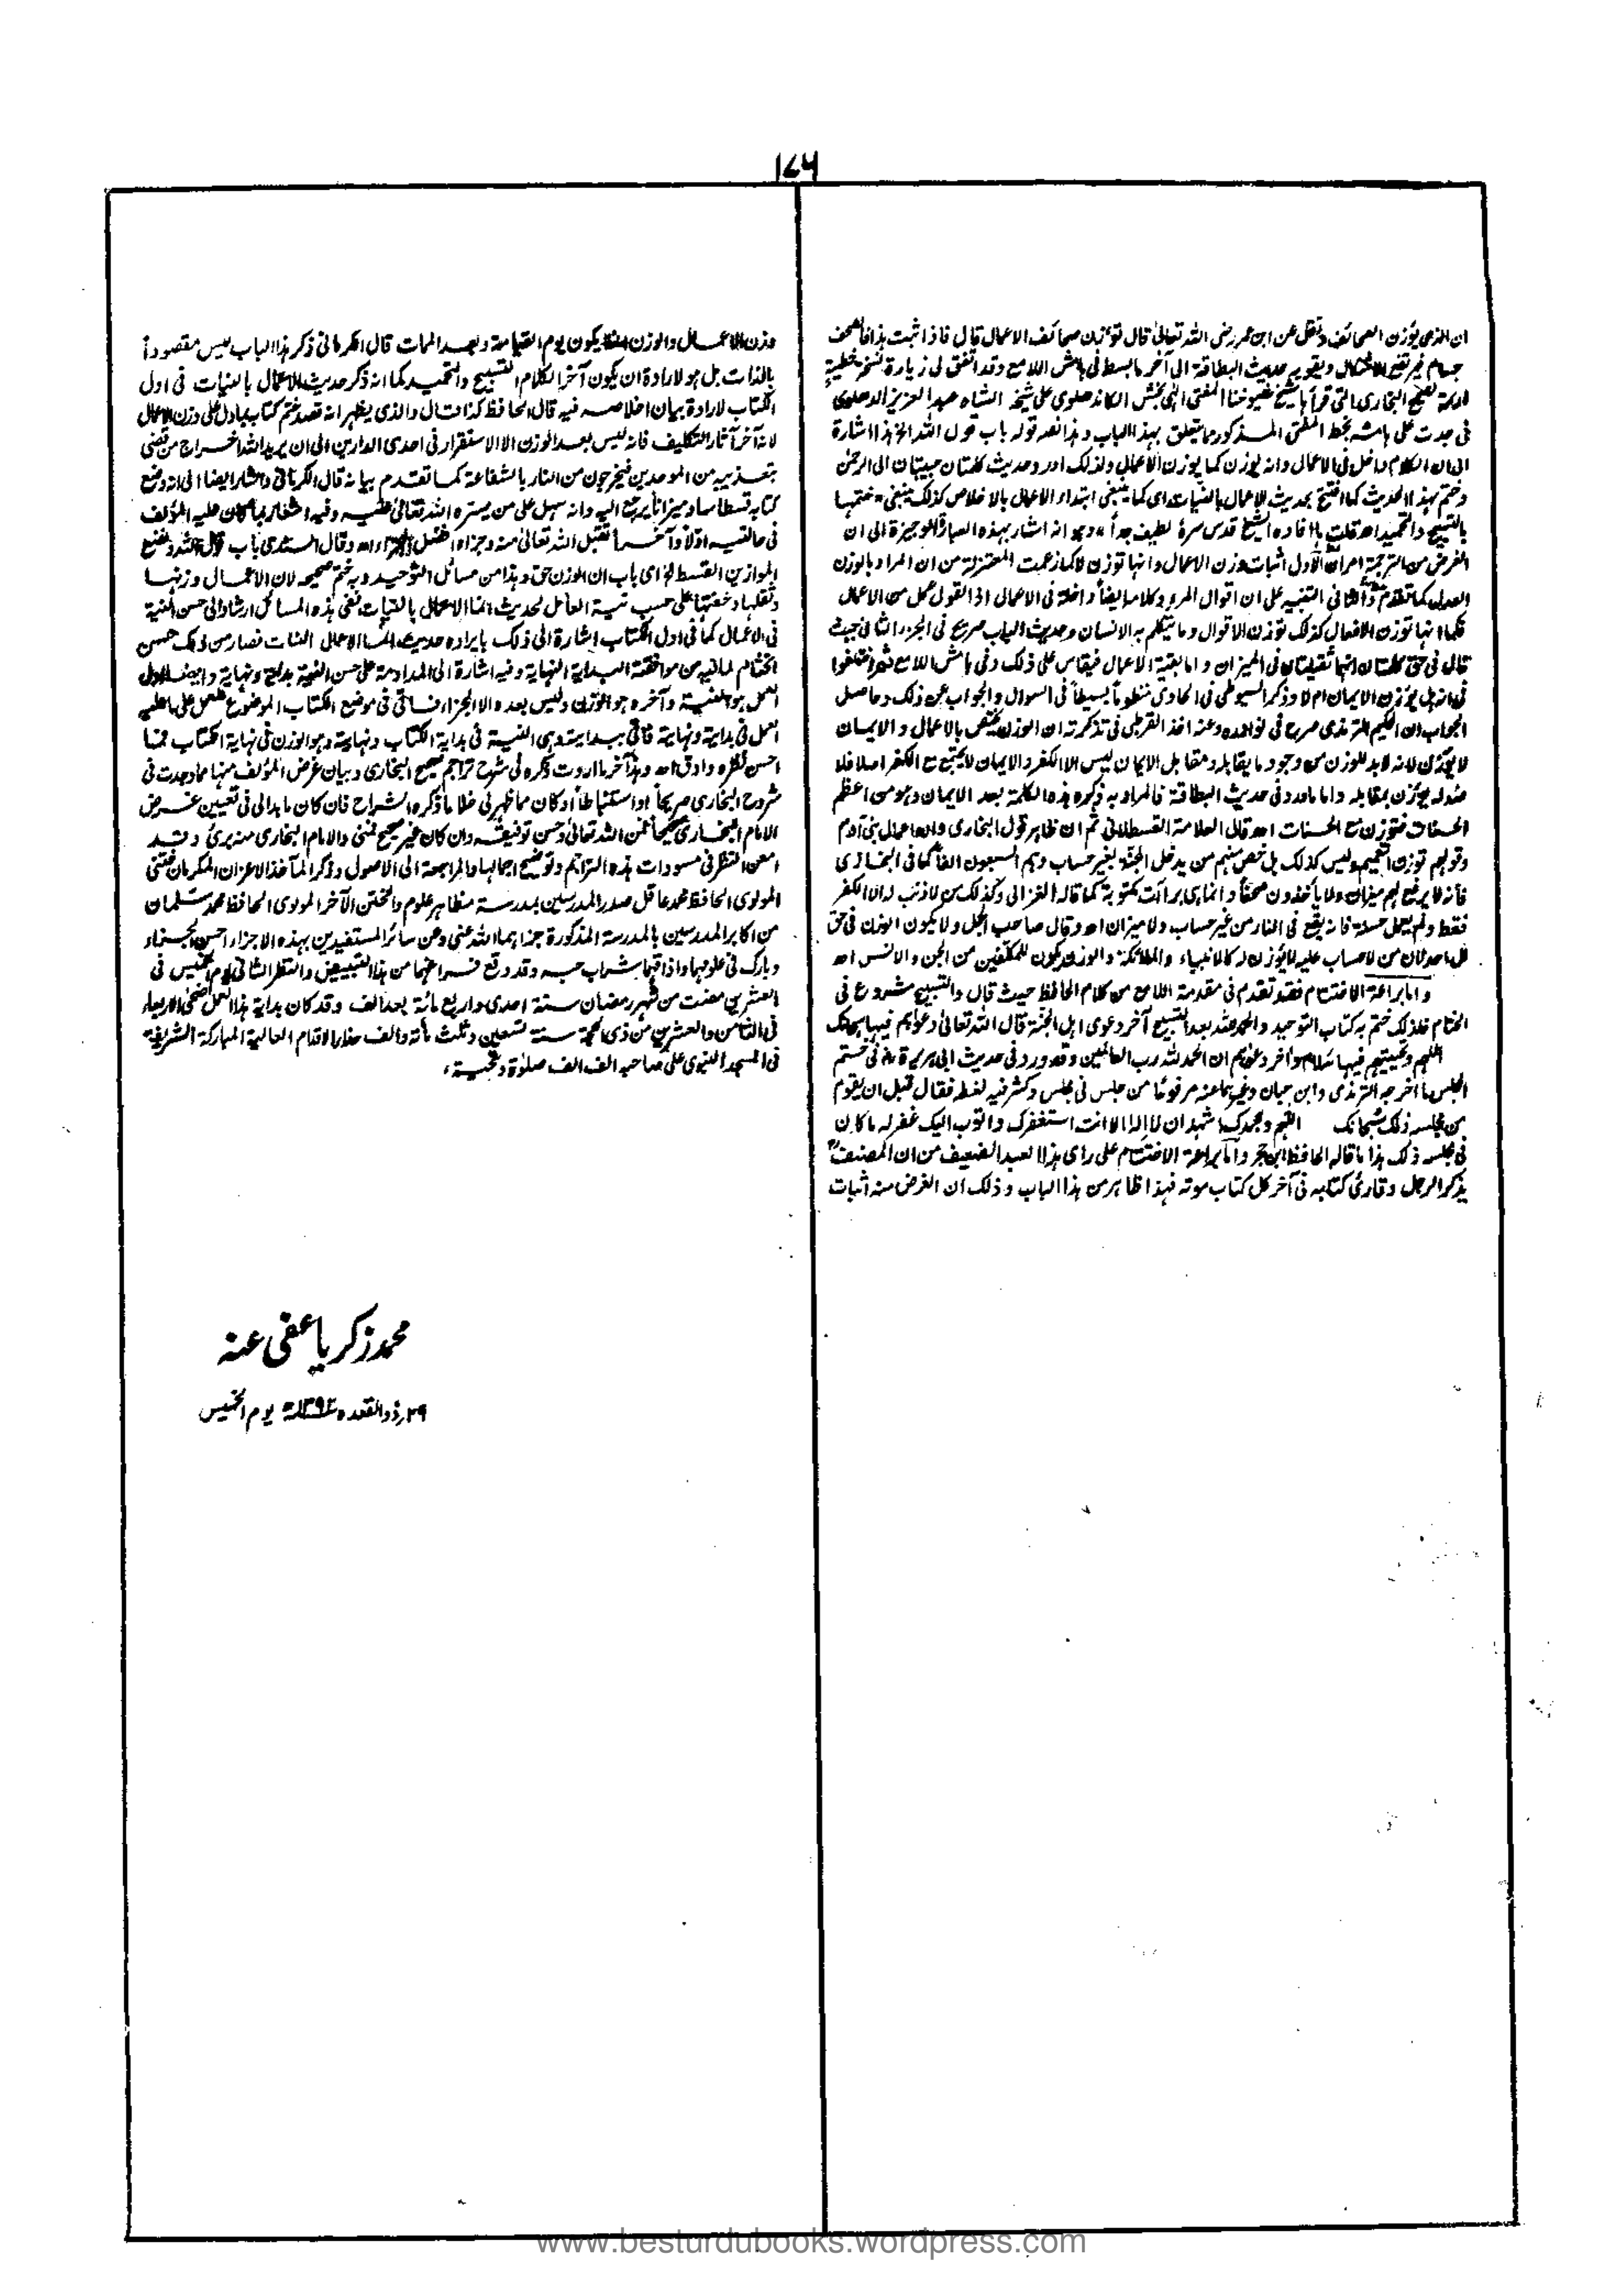 ۱۷۶
ان الذى يوزن الصحائف ونقل عن ابن عمر رضى الله تعالىٰ قال توزن صحائف الاعمال قال فاذا ثبت هذا فالصحف
اجسام فيرتفع الاشكال ويقويه حديث البطاقة الى آخر ما بسط فى هامش اللامع وقد اتفق لى زيارة نسخة خطية
لصحيح البخارى التى قرأها شيخ شيوخنا المفتى الٰهى بخش الكاندهلوى على شيخه الشاه عبدالعزيز الدهلوى
فوجدت على هامشه بخط المفتى المذكور ما يتعلق بهذا الباب وهذا نصه قوله باب قول الله الخ هذا اشارة
الى ان الكلام داخل فى الاعمال وانه يوزن كما يوزن الاعمال ولذلك اورد حديث كلمتان حبيبتان الى الرحمٰن
وختم بهذا الحديث كما افتتح بحديث الاعمال بالنيات اى كما ينبغى ابتداء الاعمال بالاخلاص كذلك ينبغى ختمها
بالتسبيح والتحميد اھ قلت ما افاده الشيخ قدس سرهٗ لطيف جداً وهو انه اشار بهذه العبارة الوجيزة الى ان
الغرض من الترجمة امران الاول اثبات وزن الاعمال وانها توزن لا كما زعمت المعتزلة من ان المراد بالوزن
العدل كما تقدم والثانى التنبيه على ان اقوال المرء وكلامه ايضاً داخلة فى الاعمال اذ القول عمل من الاعمال
فكما انها توزن الافعال كذلك توزن الاقوال وما يتكلم به الانسان وحديث الباب صريح فى الجزء الثانى حيث
قال فى حق كلمتان انهما ثقيلتان فى الميزان واما بقية الاعمال فيقاس على ذلك وفى هامش اللامع ثم اختلفوا
فى انه هل يوزن الايمان ام لا وذكر السيوطى فى الحاوى منظوماً بسيطاً فى السوال والجواب عن ذلك وحاصل
الجواب ان الحكيم الترمذى صرح فى نوادره وعنه اخذ القرطبى فى تذكرته ان الوزن يختص بالاعمال والايمان
لا يوزن لانه لابد للوزن من وجود ما يقابله ومقابل الايمان ليس الا الكفر والايمان لا يجتمع مع الكفر اصلا فلا
يوزن بمقابله واما ما ورد فى حديث البطاقة فالمراد به ذكره هذه الكلمة بعد الايمان وهو من اعظم
الحسنات فتوزن مع الحسنات اھ قال العلامة القسطلانى ثم ان ظاهر قول البخارى وان اعمال بنى آدم
وقولهم توزن التعميم وليس كذلك بل خص منهم من يدخل الجنة بغير حساب وهم السبعون الفاً كما فى البخارى
فانه لا يرفع لهم ميزان ولا ياخذون صحفاً وانما هى براآت مكتوبة كما قاله الغزالى وكذلك من لا ذنب له الا الكفر
فقط ولم يعمل حسنة فانه يقع فى النار من غير حساب ولا ميزان اھ وقال صاحب الجمل ولا يكون الوزن فى حق
كل احد لان من لا حساب عليه لا يوزن له كالانبياء والملائكة والوزن يكون للمكلفين من الجن والانس اھ
واما براعة الاختتام فقد تقدم فى مقدمة اللامع من كلام الحافظ حيث قال والتسبيح مشروع فى
الختام فلذلك ختم به كتاب التوحيد والحمد لله بعد التسبيح آخر دعوى اهل الجنة قال الله تعالىٰ دعواهم فيها سبحٰنك
اللهم وتحيتهم فيها سلام وآخر دعواهم ان الحمد لله رب العالمين وقد ورد فى حديث ابى هريرة فى ختم
المجلس ما اخرجه الترمذى وابن حبان وغيرهما عنه مرفوعًا من جلس فى مجلس وكثر فيه لغطه فقال قبل ان يقوم
من مجلسه ذلك سبحانك اللهم وبحمدك اشهد ان لا اله الا انت استغفرك واتوب اليك غفرله ما كان
فى مجلسه ذلك هذا ما قاله الحافظ ابن حجر واما براعة الاختتام على راى هذا العبد الضعيف من ان المصنف
يذكر الرجل وقارئ كتابه فى آخر كل كتاب موته فهذا ظاهر من هذا الباب وذلك ان الغرض منه اثبات
وزن الاعمال والوزن يكون يوم القيامة وبعد الممات قال الكرمانى ذكر هذا الباب ليس مقصوداً
بالذات بل هو لارادة ان يكون آخر الكلام التسبيح والتحميد كما انه ذكر حديث الاعمال بالنيات فى اول
الكتاب لارادة بيان اخلاصه فيه قال الحافظ كذا قال والذى يظهر انه قصد ختم كتابه بما دل على وزن الاعمال
لانه آخر آثار التكليف فانه ليس بعد الوزن الا الاستقرار فى احدى الدارين الى ان يريد الله اخراج من قضى
بتعذيبه من الموحدين فيخرجون من النار بالشفاعة كما تقدم بيانه قال الكرمانى واشار ايضا الى انه وضع
كتابه قسطاسا وميزانا يرجع اليه وانه سهل على من يسره الله تعالىٰ عليه وفيه اشعار بما كان عليه المؤلف
فى حالتيه اولاً وآخراً تقبل الله تعالىٰ منه وجزاه افضل الجزاء اھ وقال السندى باب قول الله ونضع
الموازين القسط الخ اى باب ان الوزن حق وهذا من مسائل التوحيد وبه ختم صحيحه لان الاعمال وزنها
وثقلها وخفتها على حسب نية العامل لحديث انما الاعمال بالنيات ففى هذه المسائل ارشاد الى حسن النية
فى الاعمال كما فى اول الكتاب اشارة الى ذلك بايراده حديث انما الاعمال النيات فصار من ذلك حسن
الختام لما فيه من موافقة البداية النهاية وفيه اشارة الى المداومة على حسن النية بداية ونهاية وايضا اول
العمل هو النية وآخره هو الوزن وليس بعده الا الجزاء فساقى فى موضع الكتاب الموضوع للعمل على ما عليه
العمل فى بداية ونهاية فاتى ببدايته وهى النية فى بداية الكتاب ونهايته وهو الوزن فى نهاية الكتاب فما
احسن نظره وادق اھ وهذا آخر ما اردت ذكره فى شرح تراجم صحيح البخارى وبيان غرض المؤلف منها مما وجدت فى
شروح البخارى صريحاً او استنباطاً او كان مما ظهر لى خلا ما ذكره الشراح فان كان ما بدا لى فى تعيين غرض
الامام البخارى صحيحاً فمن الله تعالىٰ وحسن توفيقه وان كان غير صحيح فمنى والامام البخارى منه برئ وقد
امعن النظر فى مسودات هذه التراجم وتوضيح اجمالها والمراجعة الى الاصول وذكر المآخذ الاعزان المكرمان ختنى
المولوى الحافظ محمد عاقل صدر المدرسين بمدرسة مظاهر علوم والختن الآخر المولوى الحافظ محمد سلمان
من اكابر المدرسين بالمدرسة المذكورة جزاهما الله عنى وعن سائر المستفيدين بهذه الاجزاء احسن الجزاء
وبارك فى علومهما واذاقهما بشراب حبه وقد وقع فراغهما من هذا التبييض والنظر الثانى يوم الخميس فى
العشرين مضت من شهر رمضان سنة احدى واربع مائة بعد الف وقد كان بداية هذا العمل ضحىٰ الاربعاء
فى الثامن والعشرين من ذى الحجة سنة تسعين وثلث مأته والف حذاء الاقدام العالية المباركة الشريفة
فى المسجد النبوى على صاحبه الف الف صلوٰة وتحية،
محمد زكريا عفى عنه
۲۹؍ذوالقعده يوم الخميس
www.besturdubooks.wordpress.com